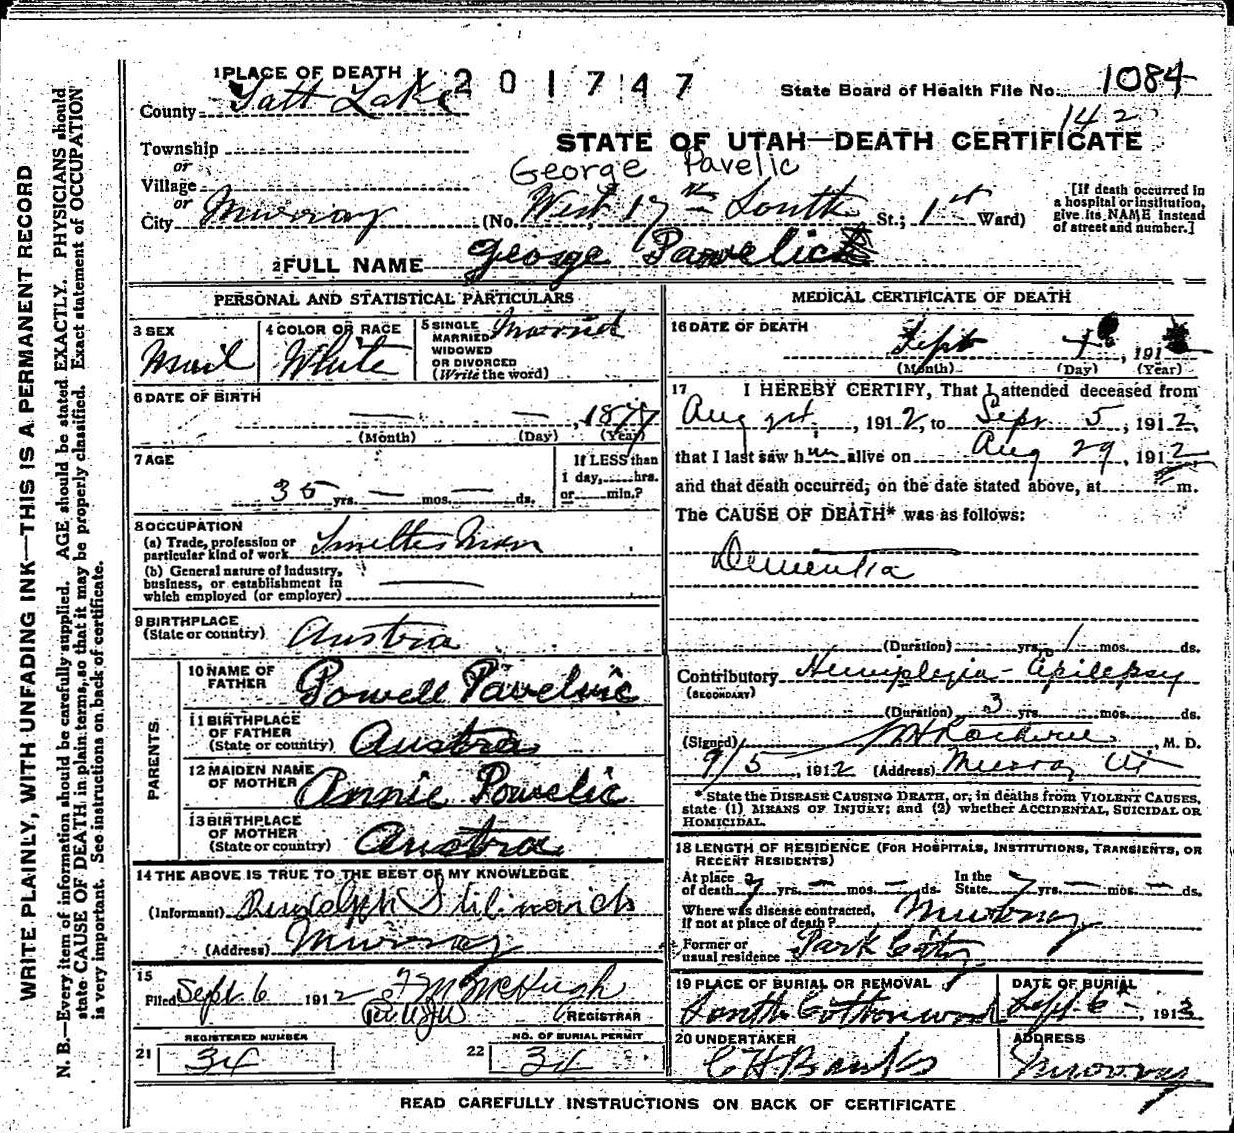 1 PLACE OF DEATH 1201747
State Board of Health File No. 1084
County Salt Lake
142
Township
STATE OF UTAH—DEATH CERTIFICATE
or
George Pavelic
Village
or
City Murray (No. West 17th South St.; 1st Ward)
[If death occurred in a hospital or institution, give its NAME instead of street and number.]
2 FULL NAME George Pawelic
PERSONAL AND STATISTICAL PARTICULARS
3 SEX Mail
4 COLOR OR RACE White
5 SINGLE MARRIED WIDOWED OR DIVORCED (Write the word) Married
6 DATE OF BIRTH
, 1877
(Month) (Day) (Year)
7 AGE
35 yrs. — mos. — ds.
If LESS than 1 day, hrs. or min.?
8 OCCUPATION
(a) Trade, profession or particular kind of work Smelter man
(b) General nature of industry, business, or establishment in which employed (or employer)
9 BIRTHPLACE (State or country) Austria
PARENTS
10 NAME OF FATHER Powell Pavelvic
11 BIRTHPLACE OF FATHER (State or country) Austra
12 MAIDEN NAME OF MOTHER Annie Powelic
13 BIRTHPLACE OF MOTHER (State or country) Austra
14 THE ABOVE IS TRUE TO THE BEST OF MY KNOWLEDGE
(Informant) Rudolph Stilinovich
(Address) Murray
15
Filed Sept. 6 1912 McHugh
REGISTRAR
REGISTERED NUMBER
21 34
NO. OF BURIAL PERMIT
22 34
MEDICAL CERTIFICATE OF DEATH
16 DATE OF DEATH
Sept , 191
(Month) (Day) (Year)
17 I HEREBY CERTIFY, That I attended deceased from
Aug 21st, 1912, to Sept 5, 1912,
that I last saw him alive on Aug 29, 1912
and that death occurred, on the date stated above, at m.
The CAUSE OF DEATH* was as follows:
Dementia
(Duration) yrs. 1 mos. ds.
Contributory Hemiplegia - Epilepsy
(SECONDARY)
(Duration) 3 yrs. mos. ds.
(Signed) , M. D.
9/5, 1912 (Address) Murray Ut
*State the DISEASE CAUSING DEATH, or, in deaths from VIOLENT CAUSES, state (1) MEANS OF INJURY; and (2) whether ACCIDENTAL, SUICIDAL OR HOMICIDAL.
18 LENGTH OF RESIDENCE (FOR HOSPITALS, INSTITUTIONS, TRANSIENTS, OR RECENT RESIDENTS)
At place of death yrs. — mos. — ds. In the State 7 yrs. — mos. — ds.
Where was disease contracted, If not at place of death? Murray
Former or usual residence Park City
19 PLACE OF BURIAL OR REMOVAL South Cottonwood
DATE OF BURIAL Sept. 6th, 1912
20 UNDERTAKER C H Banks
ADDRESS Murray
READ CAREFULLY INSTRUCTIONS ON BACK OF CERTIFICATE
WRITE PLAINLY, WITH UNFADING INK—THIS IS A PERMANENT RECORD
N. B.—Every item of information should be carefully supplied. AGE should be stated EXACTLY. PHYSICIANS should
state CAUSE OF DEATH in plain terms, so that it may be properly classified. Exact statement of OCCUPATION
is very important. See instructions on back of certificate.